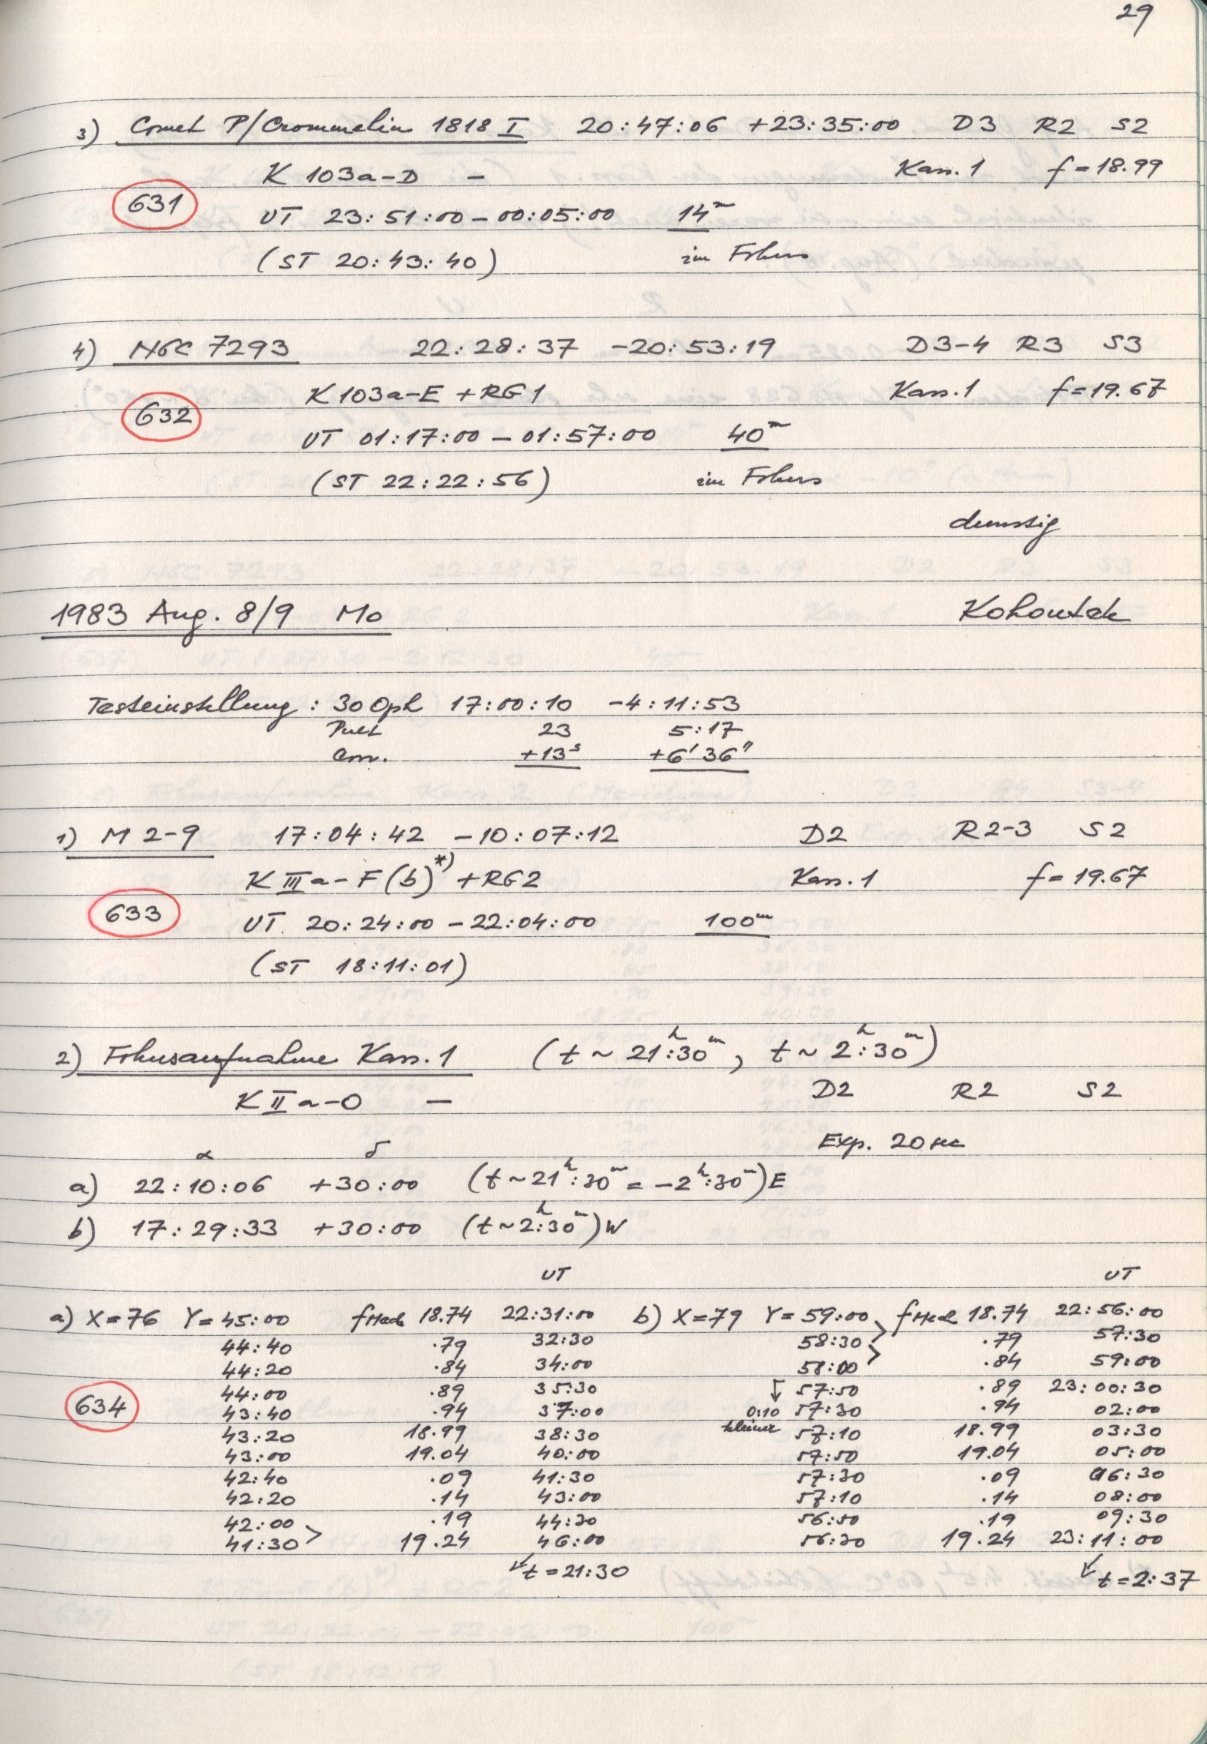 29
3) Comet P/Crommelin 1818 I 20:47:06 +23:35:00 D3 R2 S2
K 103a-D – Kass.1 f=18.99
631 UT 23:51:00 – 00:05:00 14m
(ST 20:43:40) im Fokus
4) NGC 7293 22:28:37 -20:53:19 D3-4 R3 S3
K 103a-E + RG1 Kass.1 f=19.67
632 UT 01:17:00 – 01:57:00 40m
(ST 22:22:56) im Fokus
dunstig
1983 Aug. 8/9 Mo Kohoutek
Testeinstellung : 30 Oph 17:00:10 -4:11:53
Pult 23 5:17
Corr. +13s +6'36"
1) M 2-9 17:04:42 -10:07:12 D2 R2-3 S2
K IIIa-F(b)*) + RG2 Kass.1 f=19.67
633 UT 20:24:00 – 22:04:00 100m
(ST 18:11:01)
2) Fokusaufnahme Kass.1 (t ~ 21h:30m, t ~ 2h:30m)
K IIa-O – D2 R2 S2
Exp. 20 sec
α δ
a) 22:10:06 +30:00 (t ~ 21h:30m = -2h:30m) E
b) 17:29:33 +30:00 (t ~ 2h:30m) W
UT UT
a) X=76 Y=45:00 18.74 22:31:00 b) X=79 Y=59:00 18.74 22:56:00
44:40 .79 32:30 58:30 .79 57:30
44:20 .84 34:00 58:00 .84 59:00
634 44:00 .89 35:30 57:50 .89 23:00:30
43:40 .94 37:00 0:10 57:30 .94 02:00
43:20 18.99 38:30 kleiner 57:10 18.99 03:30
43:00 19.04 40:00 57:50 19.04 05:00
42:40 .09 41:30 57:30 .09 06:30
42:20 .14 43:00 57:10 .14 08:00
42:00 .19 44:30 56:50 .19 09:30
41:30 19.24 46:00 56:30 19.24 23:11:00
t=21:30 t=2:37